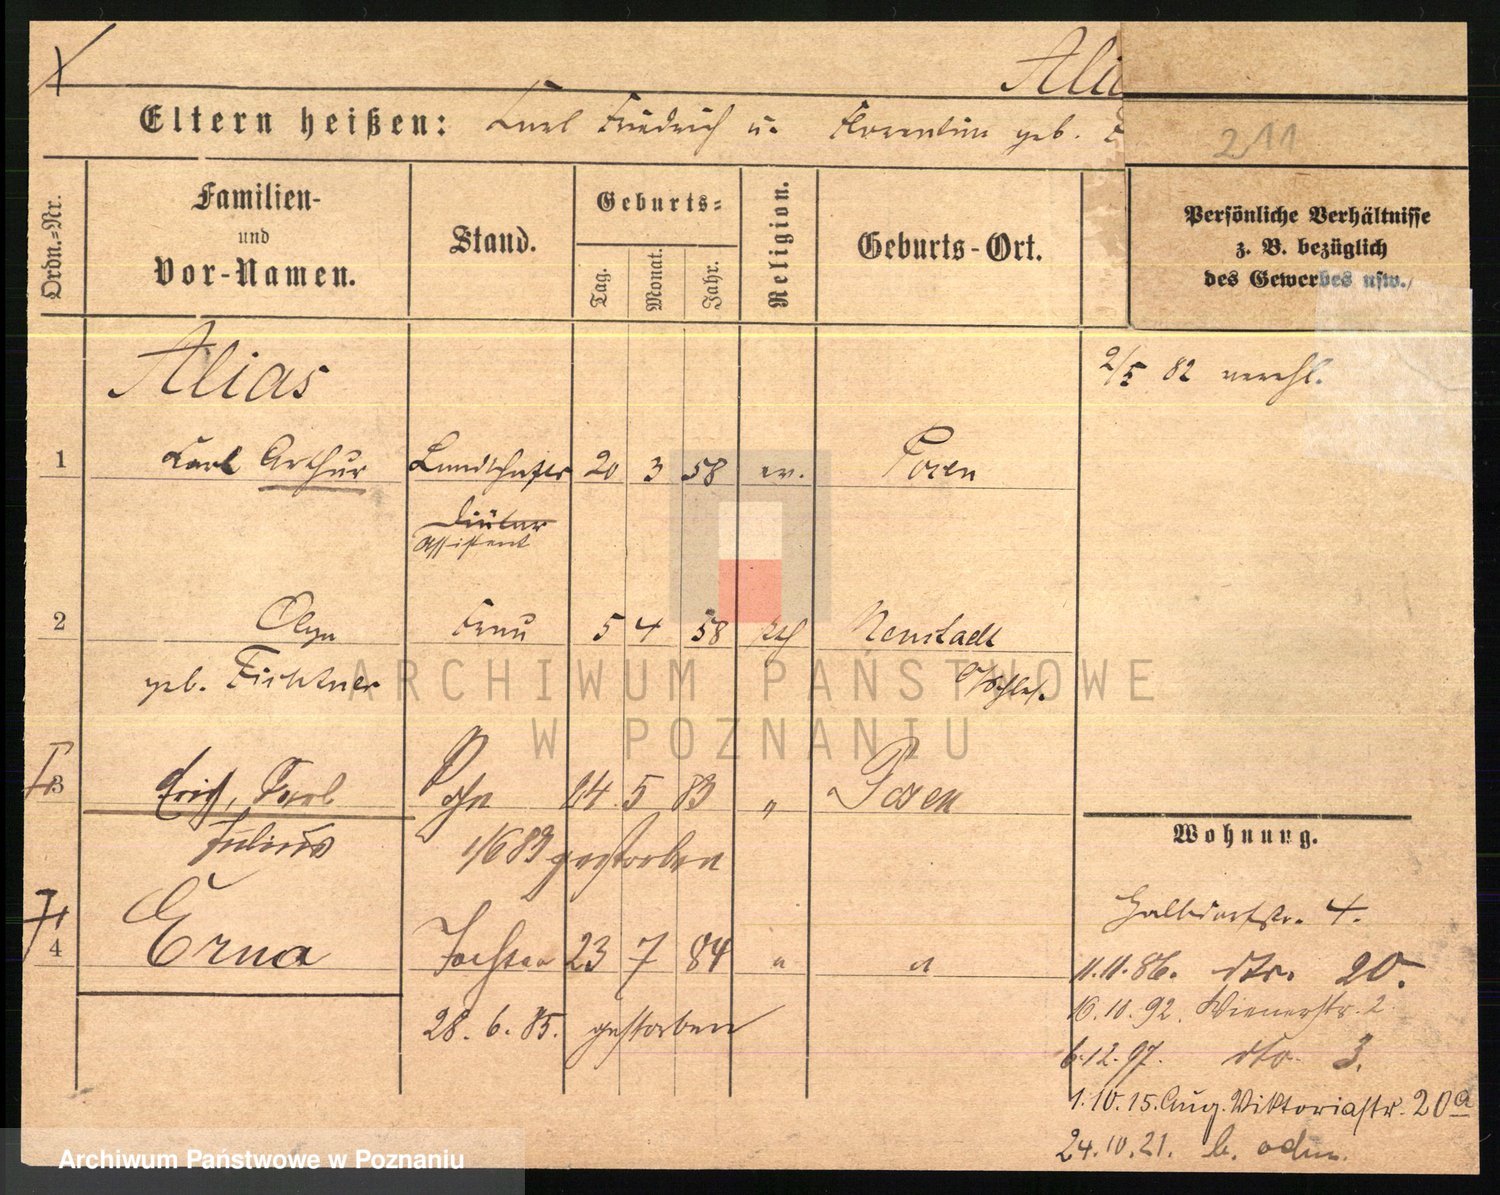 Alia
Eltern heißen: Carl Friedrich u. Florentine geb.
211
Ordn.=Nr.
Familien-
und
Vor-Namen.
Stand.
Geburts=
Tag.
Monat.
Jahr.
Religion.
Geburts-Ort.
Persönliche Verhältnisse
z. B. bezüglich
des Gewerbes usw.
Alias
2/5 82 verehl.
1 Karl Arthur Landschafts 20 3 58 ev. Posen
Diätar
Assistent
2 Olga Frau 5 4 58 kth Neustadt
geb. Fichtner O/Schles.
3 Erich, Karl Sohn 24 5 83 " Posen
Julius 1/6 83 gestorben
Wohnung.
Halbdorfstr. 4.
4 Erna Tochter 23 7 84 " "
11.11.86. dto. 20.
28. 6. 85. gestorben
16.10.92. Wienerstr. 2.
6.12.97. dto. 3.
1.10.15. Aug. Viktoriastr. 20a
24.10.21.
ARCHIWUM PAŃSTWOWE
W POZNANIU
Archiwum Państwowe w Poznaniu